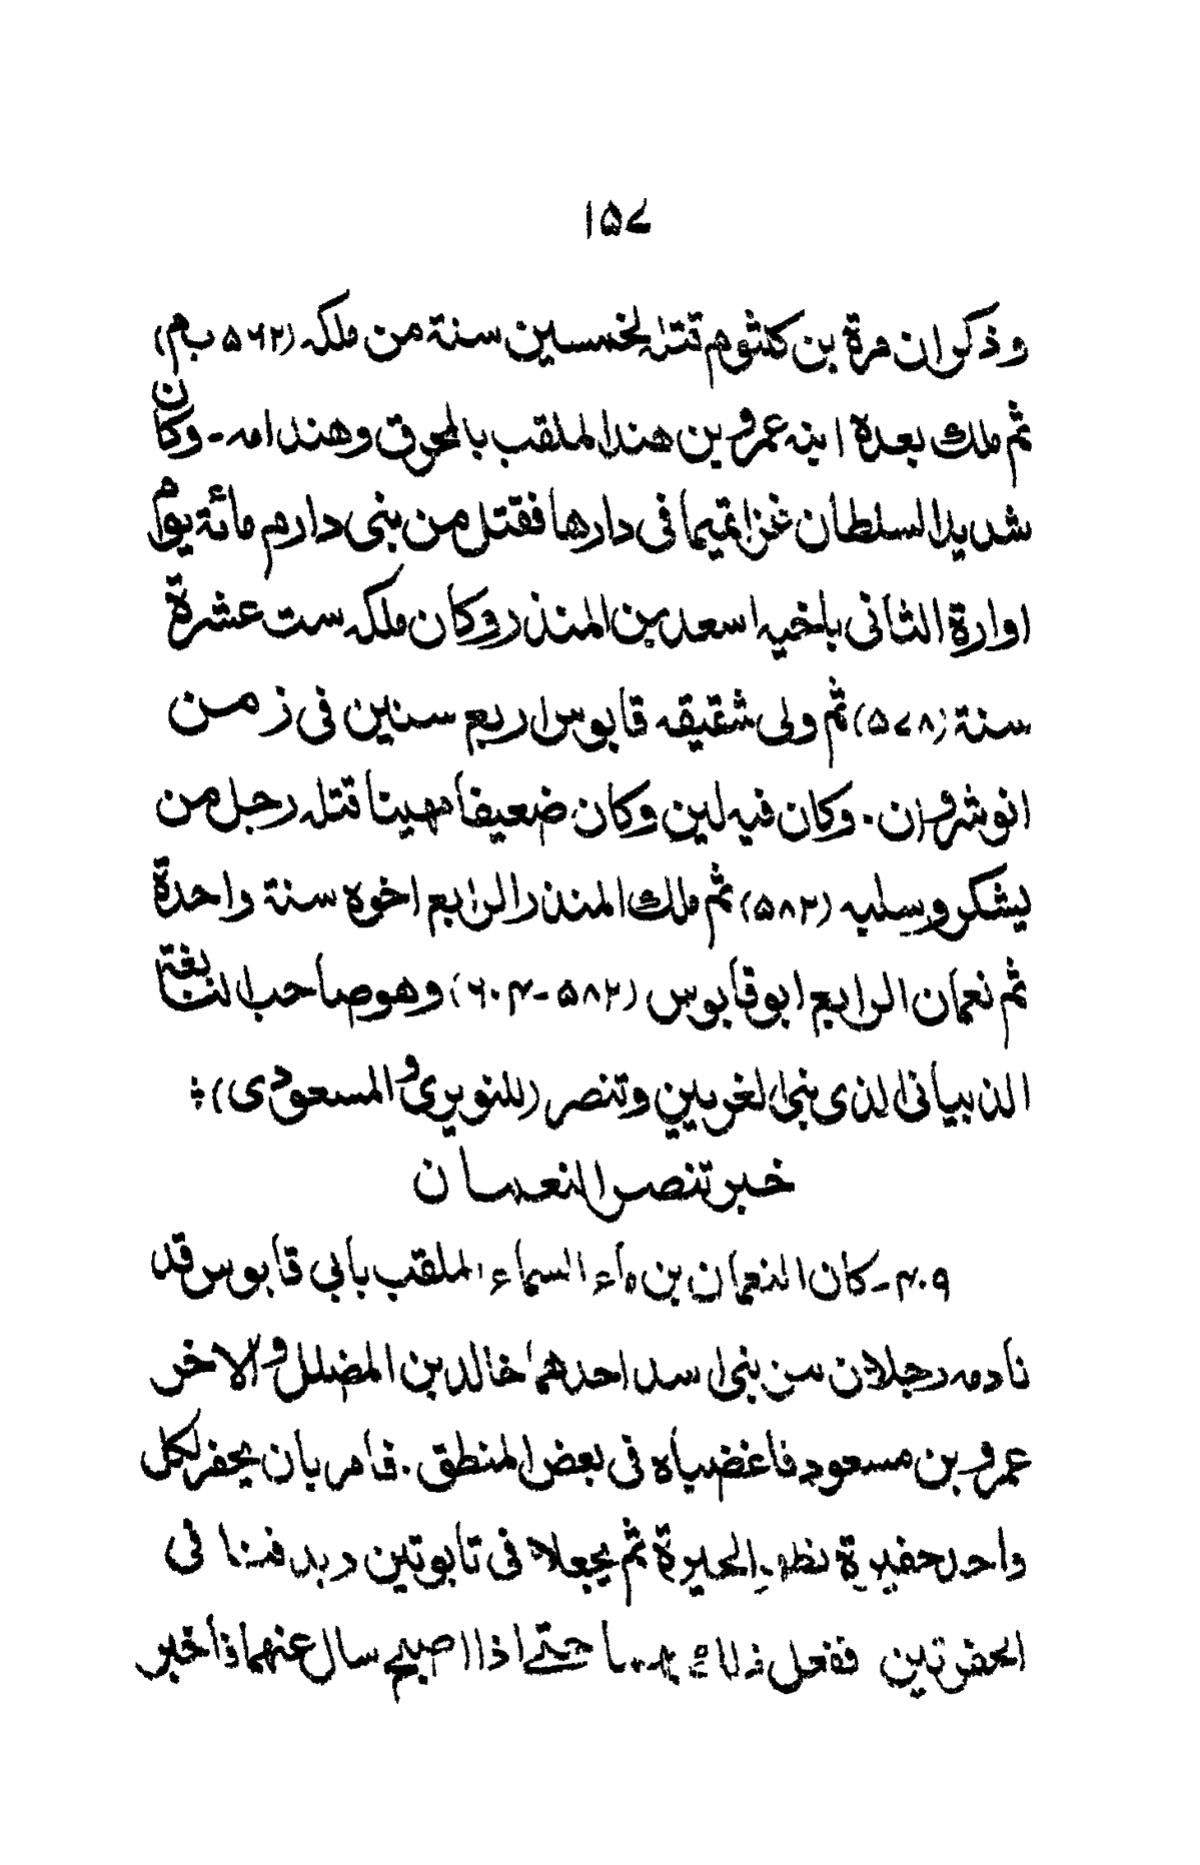 ۱۵۷
وذكر ان مرة بن كلثوم قتله لخمسين سنة من ملكه (۵۶۲ ب م)
ثم ملك بعده ابنه عمرو بن هند الملقب بالمحرق وهند امه - وكان
شديد السلطان غزا تميما فى دارها فقتل من بنى دارم مائة يوم
اوارة الثانى باخيه اسعد بن المنذر وكان ملكه ست عشرة
سنة (۵۷۸) ثم ولى شقيقه قابوس اربع سنين فى زمن
انوشروان . وكان فيه لين وكان ضعيفا مهينا قتله رجل من
يشكر وسلبه (۵۸۲) ثم ملك المنذر الرابع اخوه سنة واحدة
ثم نعمان الرابع ابو قابوس (۵۸۲-۶۰۴) وهو صاحب النابغة
الذبيانى الذى بنى الغريين وتنصر (للنويرى والمسعودى) ؞
خبر تنصر النعمان
۴۰۹ - كان النعمان بن ماء السماء الملقب بابى قابوس قد
نادمه رجلان من بنى اسد احدهما خالد بن المضلل والاخر
عمرو بن مسعود فاغضباه فى بعض المنطق . فامر بان يحفر لكل
واحد حفيرة بظهر الحيرة ثم يجعلا فى تابوتين ويدفنا فى
الحفرتين ففعل ذلك بهما حتى اذا اصبح سال عنهما فاخبر